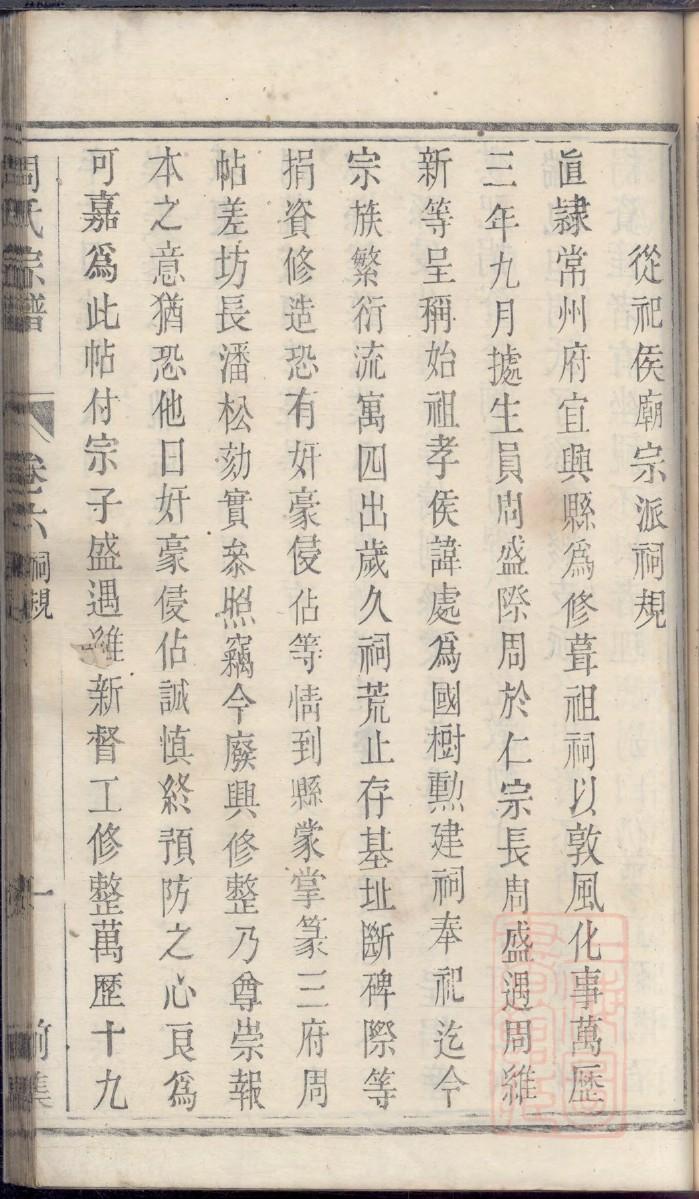 從祀侯廟宗派祠規
直隸常州府宜興縣爲修葺祖祠以敦風化事萬歷
三年九月㨿生員周盛際周於仁宗長周盛遇周維
新等呈稱始祖孝侯諱處爲國樹勲建祠奉祀迄今
宗族繁衍流寓四出歲久祠荒止存基址斷碑際等
捐資修造恐有奸豪侵佔等情到縣蒙掌篆三府周
帖差坊長潘松劾實叅照竊今廢興修整乃尊崇報
本之意猶恐他日奸豪侵佔誠慎終預防之心良爲
可嘉爲此帖付宗子盛遇維新督工修整萬歷十九
周氏宗譜
卷六
祠規
一
前集